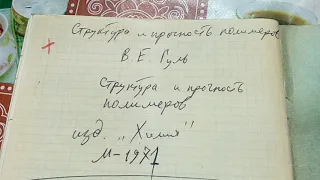 Структура и прочность полимеров
В Е. Гуль
Структура и прочность
полимеров
изд. „Химия"
М-1971